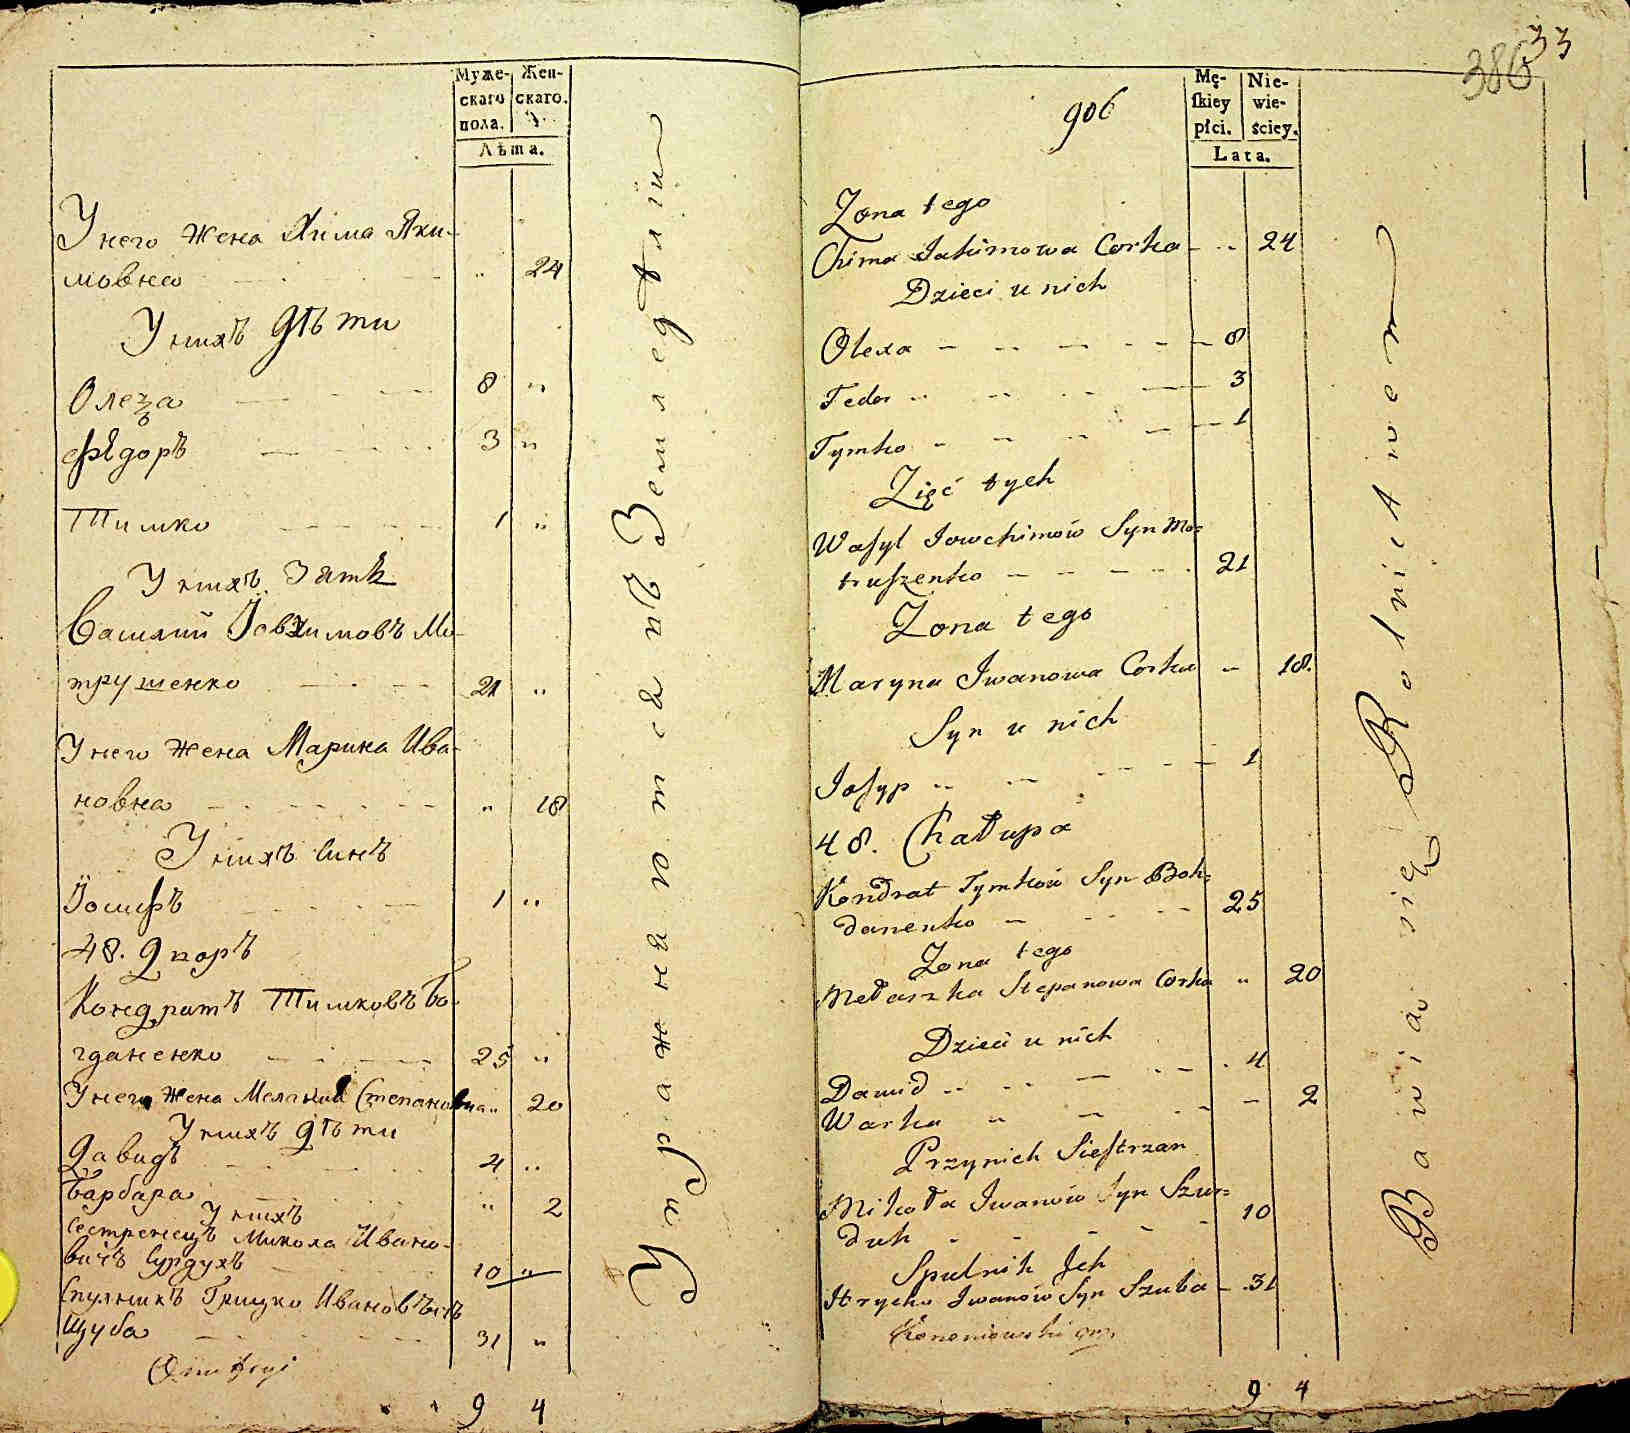 Муже-
скаго
пола.
Жен-
скаго.
Лѣта.
У него жена Хима Яки-
мовна 24
У нихъ дѣти
Олеѯа 8
Ѳѣдоръ 3
Тимко 1
У нихъ Зять
Василий Іовхимовъ Мо-
трушенко 21
У него жена Марина Ива-
новна 18
У нихъ синъ
Йосифъ 1
48. Дворъ
Кондратъ Тимковъ Бо-
гданенко 25
У него жена Мелания Степановна 20
У нихъ дѣти
Давидъ 4
Варвара 2
У нихъ
сестренецъ Микола Ивано-
вичъ Сурдухъ 10
Спулникъ Грицко Ивановъ
Щуба 31
9 4
Упражняются въ Земледѣлїи
33
386
906
Mę-
skiey
płci.
Nie-
wie-
ściey.
Lata.
Zona tego
Chima Jakimowa Corka 24
Dzieci u nich
Olexa 8
Fedor 3
Tymko 1
Zięć tych
Wasyl Jowchimów Syn Mo=
truszenko 21
Zona tego
Maryna Iwanowa Corka 18.
Syn u nich
Josyp 1
48. Chałupa
Kondrat Tymków Syn Boh=
danenko 25
Zona tego
Mełaszka Stepanowa Corka 20
Dzieci u nich
Dawid 4
Warka 2
Przynich Siestrzan
Mikoła Iwanów Syn Szur=
duh 10
Spulnik Jch
Hrycko Iwanów Syn Szuba 31
9 4
Bawią się Rolnictwem